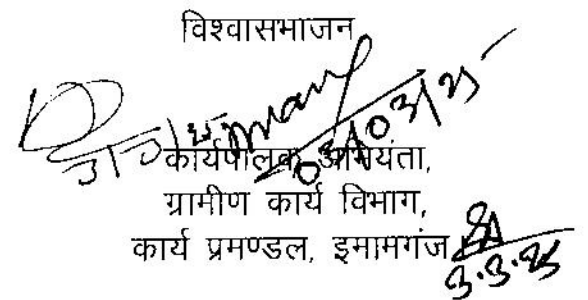 विश्वासभाजन
03/03/25
3/3/25
कार्यपालक अभियंता,
ग्रामीण कार्य विभाग,
कार्य प्रमण्डल, इमामगंज
3.3.25